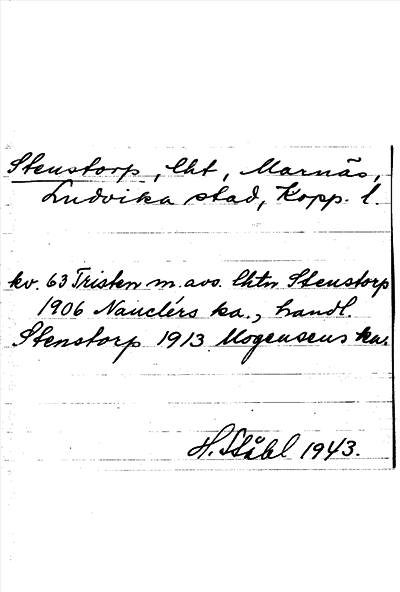 Stenstorp, lht, Marnäs,
Ludvika stad, Kopp. l.
kv. 63 Tristen m. avs. lhtn Stenstorp
1906 Nauclérs ka., handl.
Stenstorp 1913 Mogensens ka.
H. Ståhl 1943.